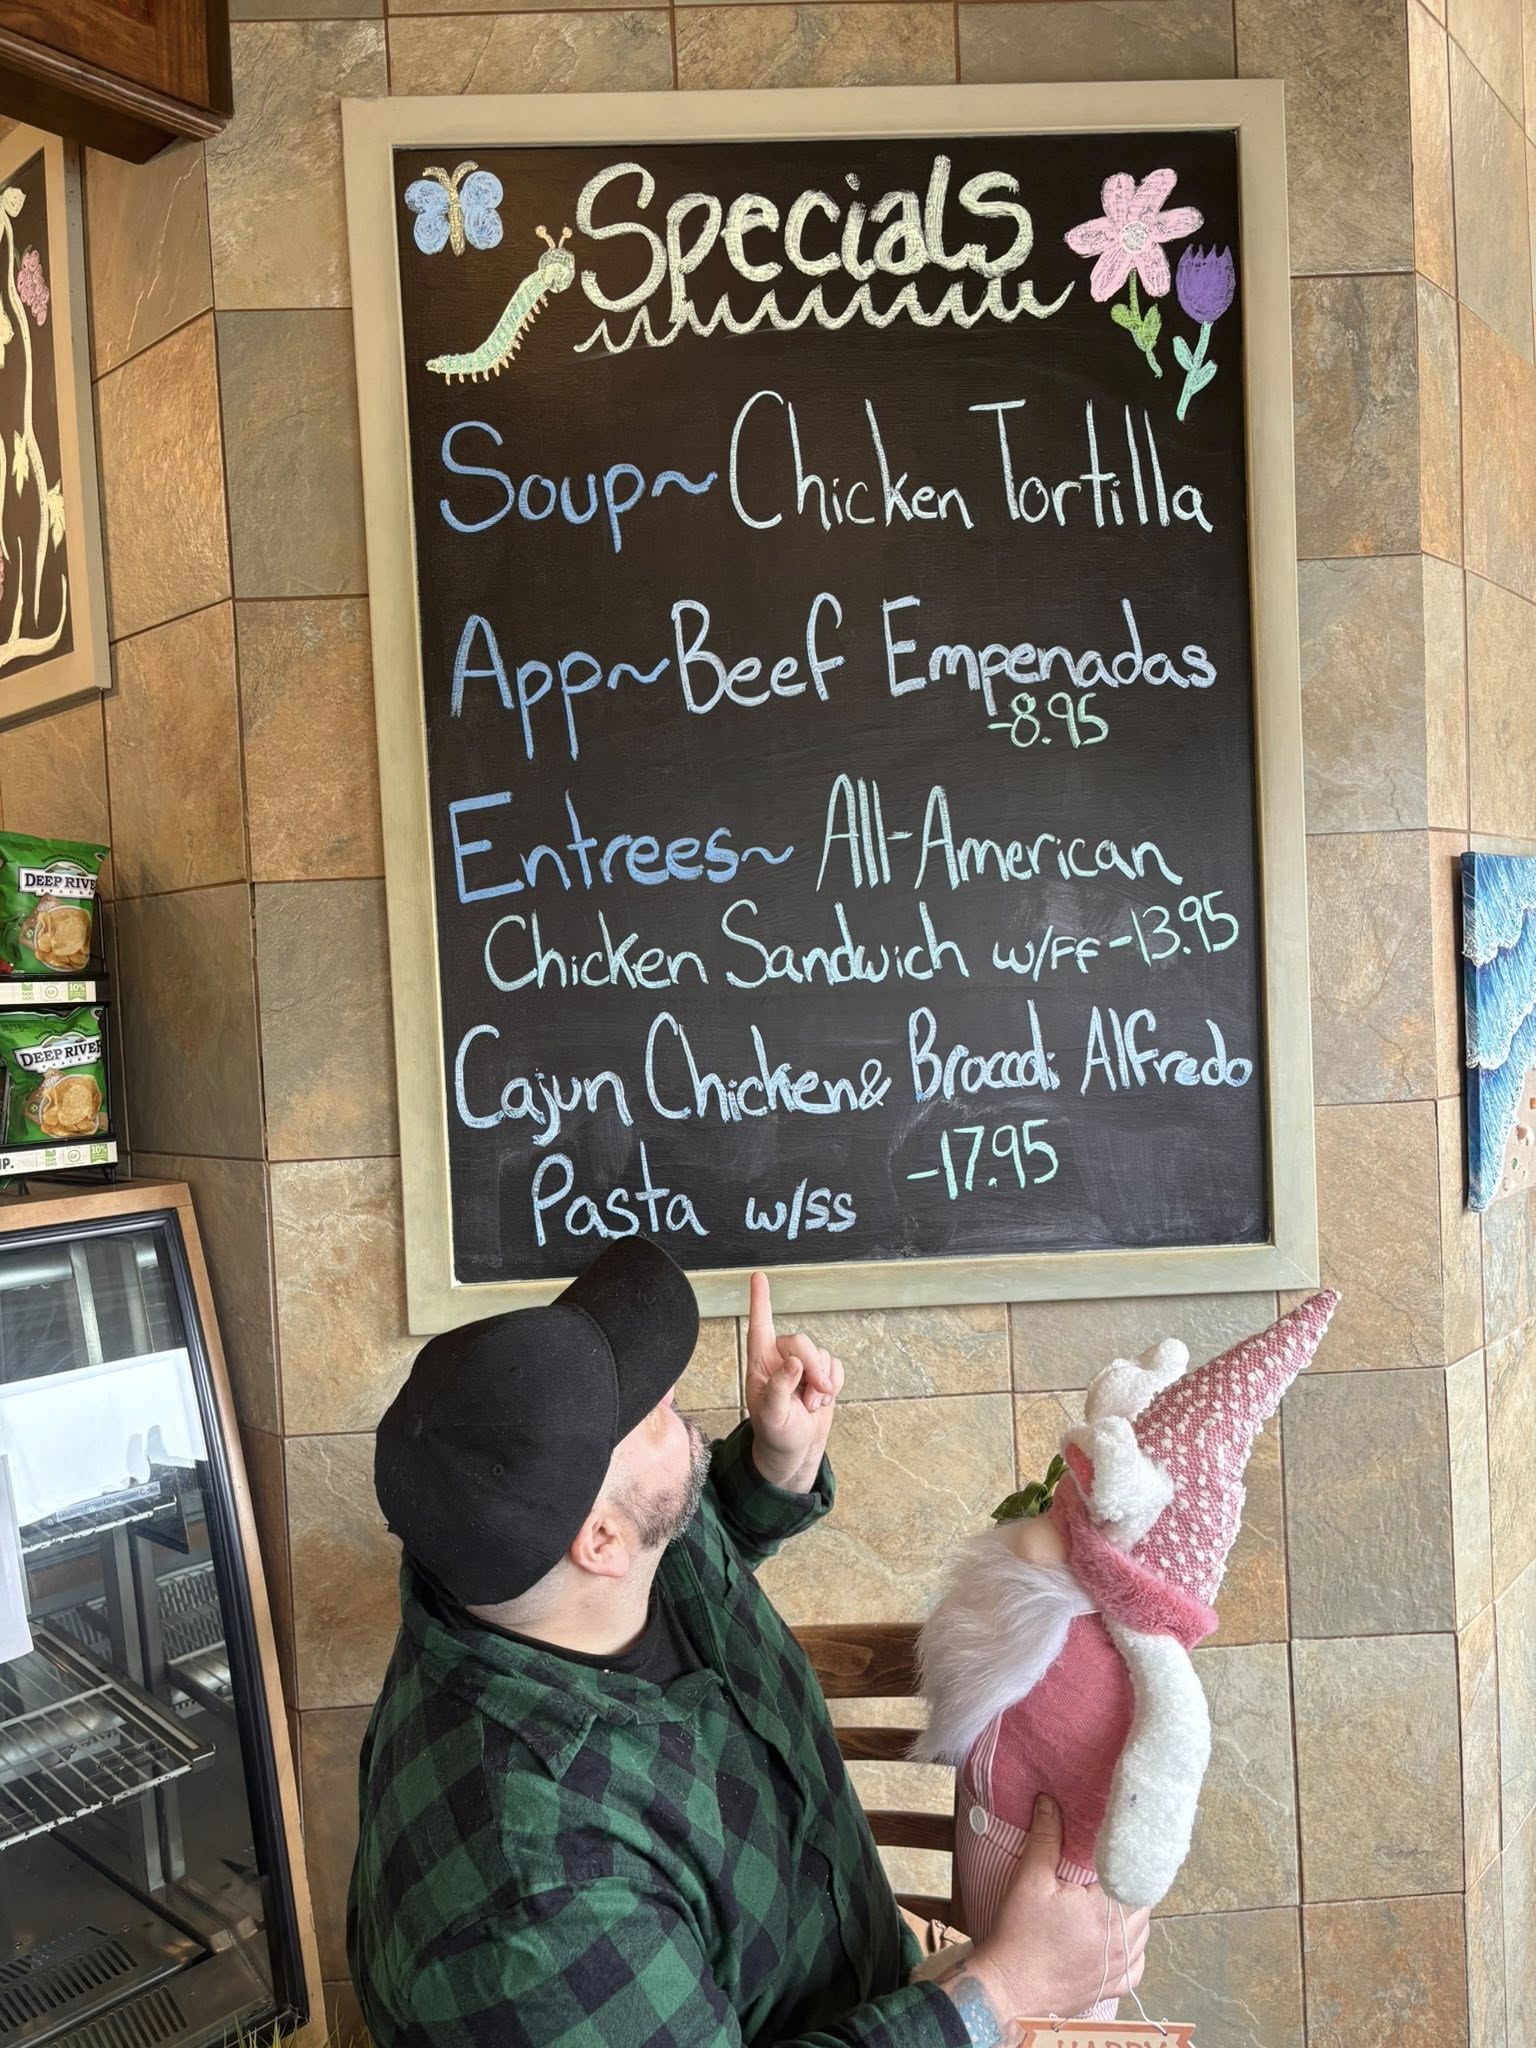 Specials
Soup~ Chicken Tortilla
App~ Beef Empenadas
-8.95
Entrees~ All-American
Chicken Sandwich w/FF -13.95
Cajun Chicken & Broccoli Alfredo
Pasta w/ss -17.95
DEEP RIVER
SNACKS
10%
DEEP RIVER
SNACKS
10%
HAPPY